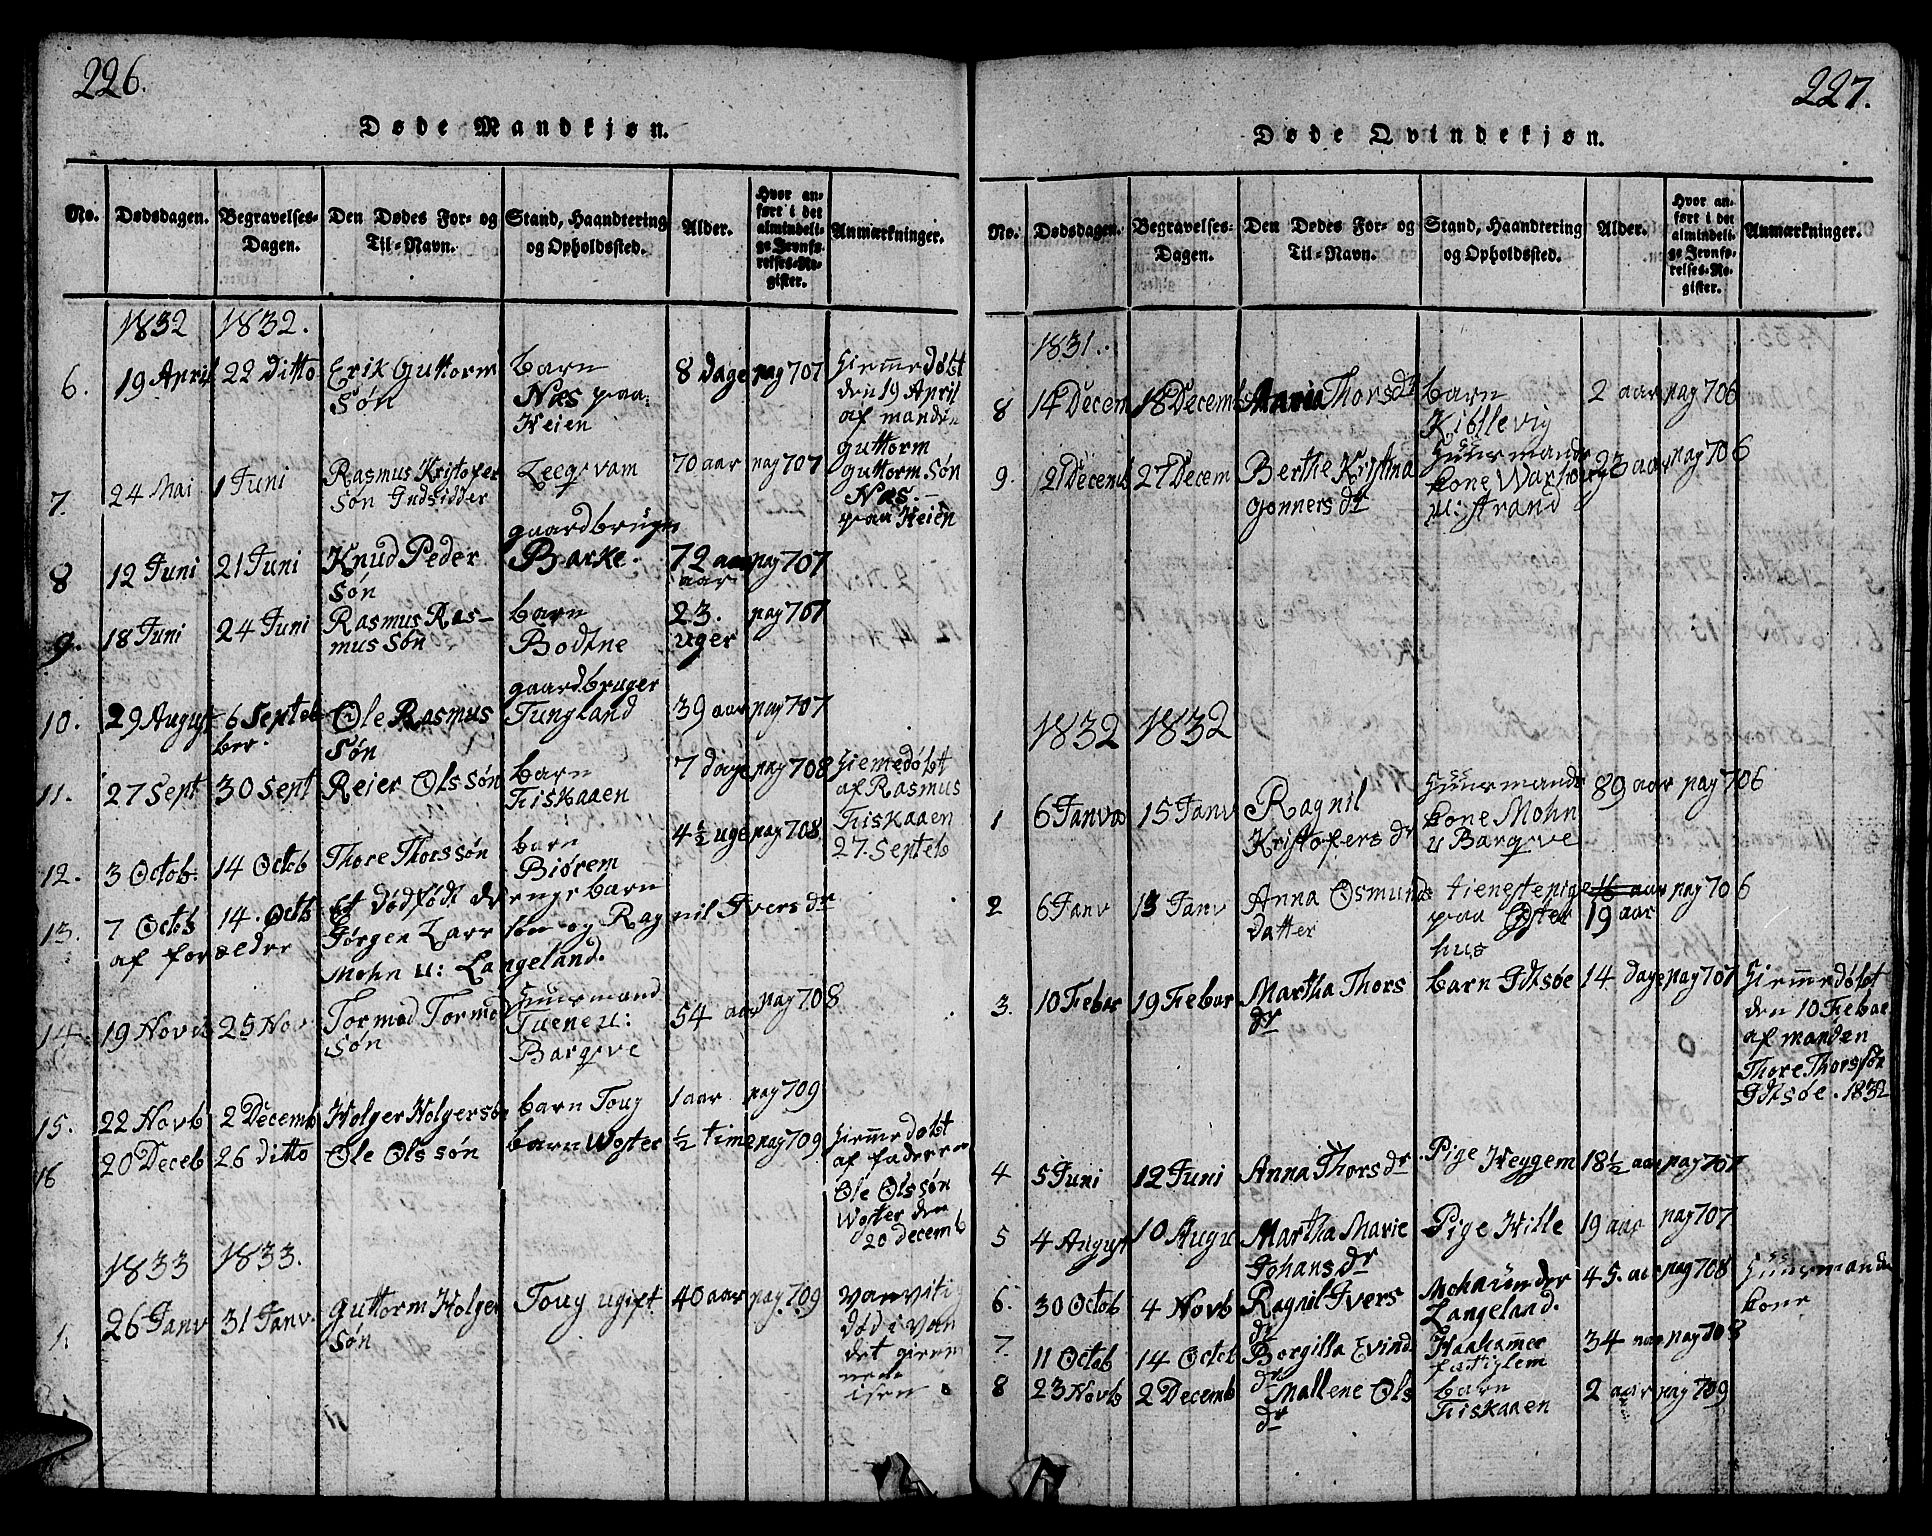 226.
Døde Mandkjøn.
No. Dødsdagen. Begravelses-Dagen. Den Dødes For- og Til-Navn. Stand, Haandtering og Opholdssted. Alder. Hvor anført i det almindelige Jevnførelses-Register. Anmærkninger.
1832 1832.
6. 19 April 22 Ditto Erik Guttorm Søn barn Næs paa: Heien 8 Dage pag 707 Hiemedøbt den 19 April af manden guttorm guttorm Søn Næs paa Heien
7. 24 Mai 1 Juni Rasmus Kristofer Søn Indsidder Leegsvam 70 aar pag 707
8 12 Juni 21 Juni Knud Peder Søn gaardbruger Barke. 72 aar aar pag 707
9. 18 Juni 24 Juni Rasmus Rasmus Søn barn Bodtne 23. uger pag 707
10. 29 August 6 September. Ole Rasmus Søn gaardbruger Tungland 39 aar pag 707
11. 27 Sept 30 Sept Reier Ols søn barn Fiskaaen 7 dage pag 708 Hiemedøbt af Rasmus Fiskaaen 27. Septeb
12. 3 Octob 14 Octob Thore Thorssøn barn Biørem 4½ uge pag 708
13. 7 Octob 14. Octb Et dødfødt drenge barn
af forældre Jørgen Larrsøn og Ragnil Ivers dr
Mohn u: Langeland.
14. 19 Novb 25 Nov Tormod Tormod Søn Huusmand Tuene u: Bargsve 54 aar pag 708
15. 22 Novb 2 Decemb Holger Holgersøn barn Toug 1 aar pag 709
16 20 Deceb 26 ditto Ole Ols søn barn Woster ½ time pag 709 Hiemedøbt af faderen Ole Olssøn Woster den 20 decemb
1833 1833.
1. 26 Janv 31 Janv. Guttorm Holger Søn Toug ugift 40 aar pag 709 vanvitig død i van det giennem isen
227.
Døde Qvindekjøn.
No. Dødsdagen. Begravelses-Dagen. Den Dødes For- og Til-Navn. Stand, Haandtering og Opholdssted. Alder. Hvor anført i det almindelige Jevnførelses-Register. Anmærkninger.
1831.
8 14 Decem 18 Decemb Maria Thors dr barn Kiðllevig 2 aar pag 706
9. 21 Decemb 27 Decem Berthe Kristina Gonners dr Huusmands kone Waxberg u: Strand 23 aar pag 706
1832 1832
1 6 Janva 15 Janv Ragnil Kristofers dr Huusmands kone Mohn u Bargsve 89 aar pag 706
2 6 Janv 13 Janv Anna Osmunds datter tienestepige paa Østerhus 16 aar 19 aar pag 706
3. 10 Febar 19 Febar Martha Thors dr barn Idtsøe 14 dage pag 707 Hiemedøbt den 10 Febar af manden Thore Thorssøn Idtsøe. 1832
4 5 Juni 12 Juni Anna Thors dr Pige Heggem 18½ aar pag 707
5 4 August 10 Augu Martha Marie Johans dr Pige Hille 19 aar pag 707
6. 30 Octob 4 Novb Ragnil Ivers dr Mohn under Langeland. 45. aar pag 708 Huusmands kone
7. 11 Octob 14 Octob Borgilla Evind dr Haahammer fattiglem 34 aar pag 708
8 23 Novb 2 Decemb Mallene Ols dr barn Fiskaaen 2 aar pag 709